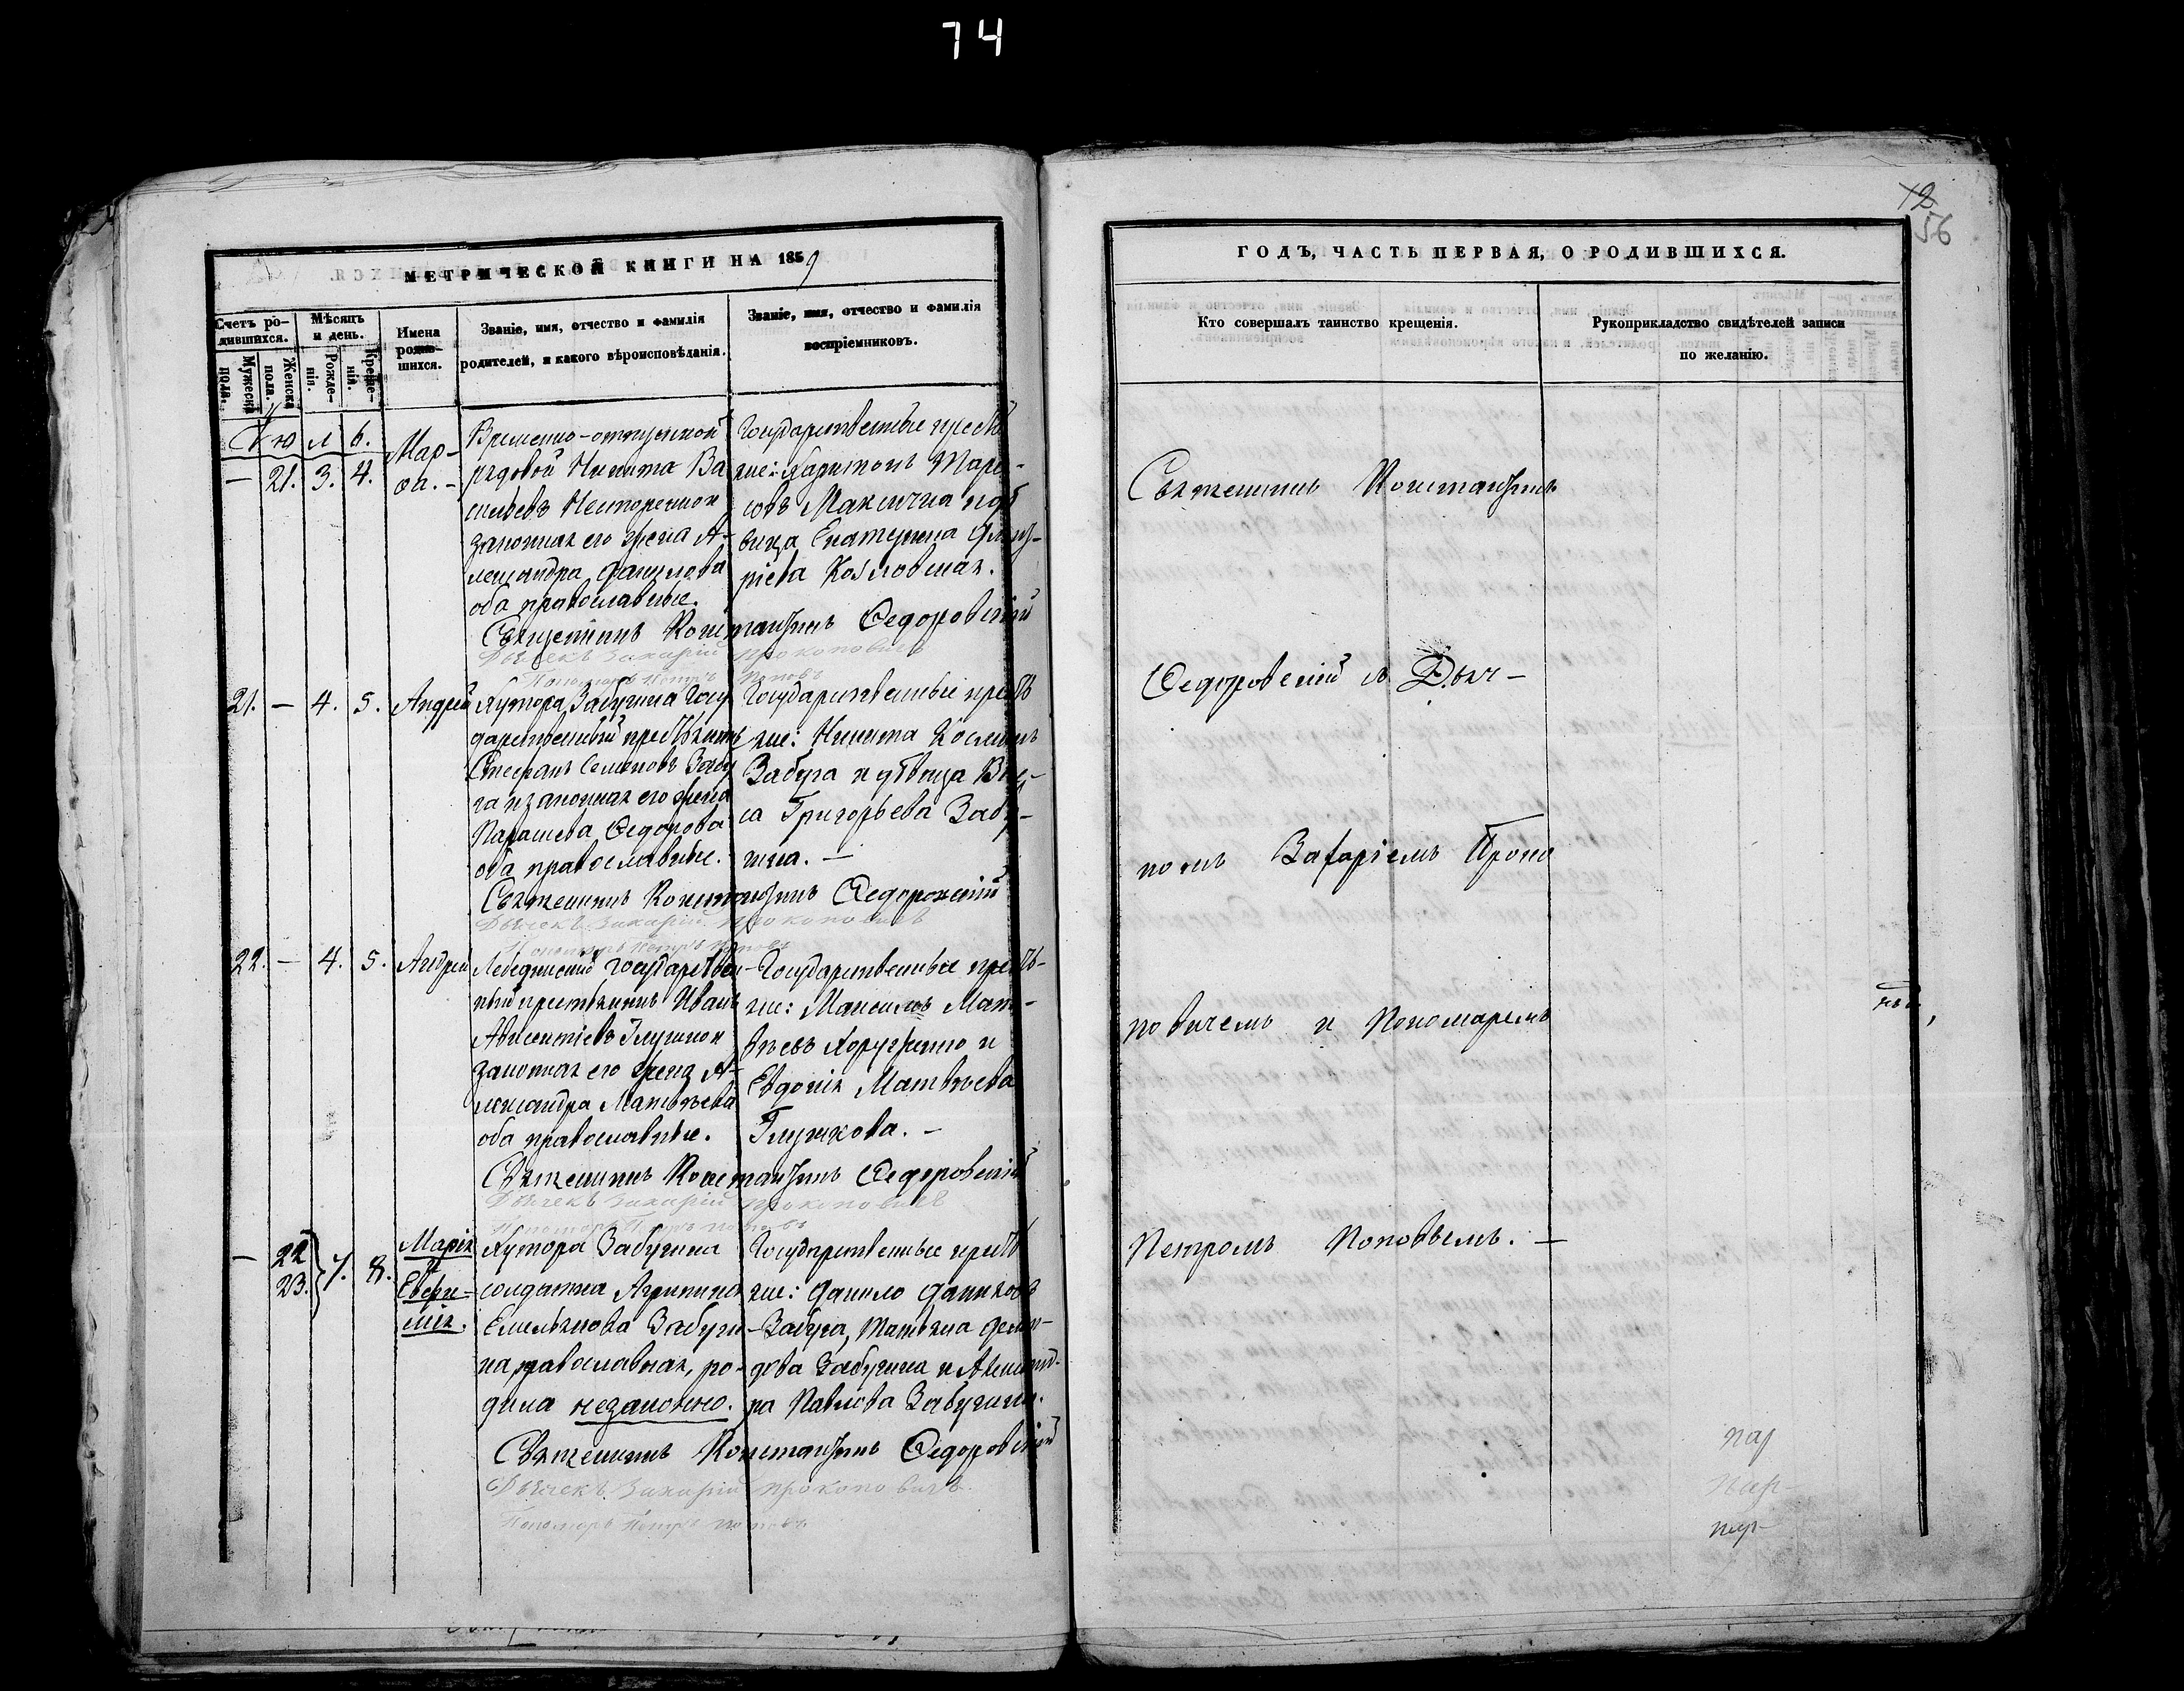 74
12
56
МЕТРИЧЕСКОЙ КНИГИ НА 1859
Счетъ ро-
дившихся.
Мужеска
пола.
Женска
пола.
Мѣсяцъ
и день.
Рожде-
нія.
Креще-
нія.
Имена
родив-
шихся.
Званіе, имя, отчество и фамилія
родителей, и какого вѣроисповѣданія.
Званіе, имя, отчество и фамилія
воспріемниковъ.
Іюль
— 21. 3. 4.
Мар-
ѳа. -
Временно-отпускной
рядовой Никита Ва
сильевъ
законная его жена А-
лександра Данилова
оба православные.
Государственные
Харитонъ
совъ
вица Екатерина
рьева Козловская.
Священникъ Константинъ Ѳедоровскій
Дьячекъ Захарій Прокоповичъ
Пономарь Петръ Поповъ
21. — 4. 5. Андрей
Хутора Забугина Госу
дарственный крестьянинъ
Стефанъ Семеновъ Забу
га и законная его жена
Параскева Ѳедорова
оба православные.
Государственные крестья
не: Никита Косминъ
Забуга и дѣвица Ва
са Григорьева Забу-
гина. —
Священникъ Константинъ Ѳедоровскій
Дьячекъ Захарій Прокоповичъ
Пономарь Петръ Поповъ
22. — 4. 5. Андрей
Лебединскій Государствен-
ный крестьянинъ Иванъ
законная его жена А-
лександра Матвѣева
оба православные.
Государственные крестья-
не: Матвѣевъ
и
Евдокія Матвѣева
Глушкова. —
Священникъ Константинъ Ѳедоровскій
Дьячекъ Захарій Прокоповичъ
Пономарь Петръ Поповъ
— 22 23. 7. 8.
Марія
и
Евфи-
мія.
Хутора Забугина
солдатка Агрипина
Емельянова Забуги-
на православная, ро-
дила незаконно.
Государственные крестья
не: Данило Даниловъ
Забуга, Татьяна Деми-
дова Забугина и Александ-
ра Павлова Забугина.
Священникъ Константинъ Ѳедоровскій
Дьячекъ Захарій Прокоповичъ
Пономарь Петръ Поповъ
ГОДЪ, ЧАСТЬ ПЕРВАЯ, О РОДИВШИХСЯ.
Кто совершалъ таинство крещенія.
Рукоприкладство свидѣтелей записи
по желанію.
Священникъ Константинъ
Ѳедоровскій съ Дьяч-
комъ Захаріемъ Проко
повичемъ и Пономаремъ
Петромъ Поповымъ. —